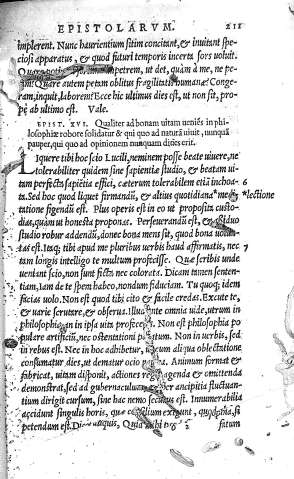 EPISTOLARVM. 218
implerent. Nunc haurientium sitim concitant, & inuitant spe-
ciosi apparatus, & quod futuri temporis incerta sors voluit.
impetrem, ut det, quàm à me, ne pe-
Quare autem petam oblitus fragilitatis humanæ? Conge-
ram, in quid, laborem? Ecce hic ultimus dies est, ut non sit, pro-
pè ab ultimo est. Vale.
EPIST. XVI. Qualiter ad bonam uitam ueniēs in phi-
losophiæ robore solidatur & qui quo ad naturā uiuit, nunquā
pauper, qui quo ad opinionem nunquam diues erit.
LIquere tibi hoc scio Lucili, neminem posse beatè uiuere, ne
tolerabiliter quidem sine sapientiæ studio, & beatam ui-
tam perfecta sapiētia effici, cæterum tolerabilem etiā inchoa-
ta. Sed hoc quod liquet firmandū, & altius quotidiana medi-
tatione figendū est. Plus operis est in eo ut proposita custo-
dias, quàm ut honesta proponas. Perseuerandū est, & assiduo
studio robur addendū, donec bona mens sit, quod bona uolun-
tas est. Itaq; tibi apud me pluribus verbis haud affirmatis, nec
tam longis intelligo te multum profecisse. Quæ scribis unde
ueniant scio, non sunt ficta nec colorata. Dicam tamen senten-
tiam, iam de te spem habeo, nondum fiduciam. Tu quoq; idem
facias uolo. Non est quod tibi citò & facile credas. Excute te,
& variè scrutare, & obserua. Illud ante omnia uide, utrum in
philosophia, an in ipsa uita profeceris. Non est philosophia po
pulare artificiū, nec ostentationi paratum. Non in uerbis, sed
in rebus est. Nec in hoc adhibetur, ut cum aliqua oblectatione
consumatur dies, ut dematur ocio nausea. Animum format &
fabricat, uitam disponit, actiones regit, agenda & omittenda
demonstrat, sed ad gubernaculum & per ancipitia fluctuan-
tium dirigit cursum, sine hac nemo securus est. Innumerabilia
accidunt singulis horis, quæ consilium exigunt, quod ab ea, si
petendum est. Dicet aliquis, Quid mihi
situm
6
lectione
7